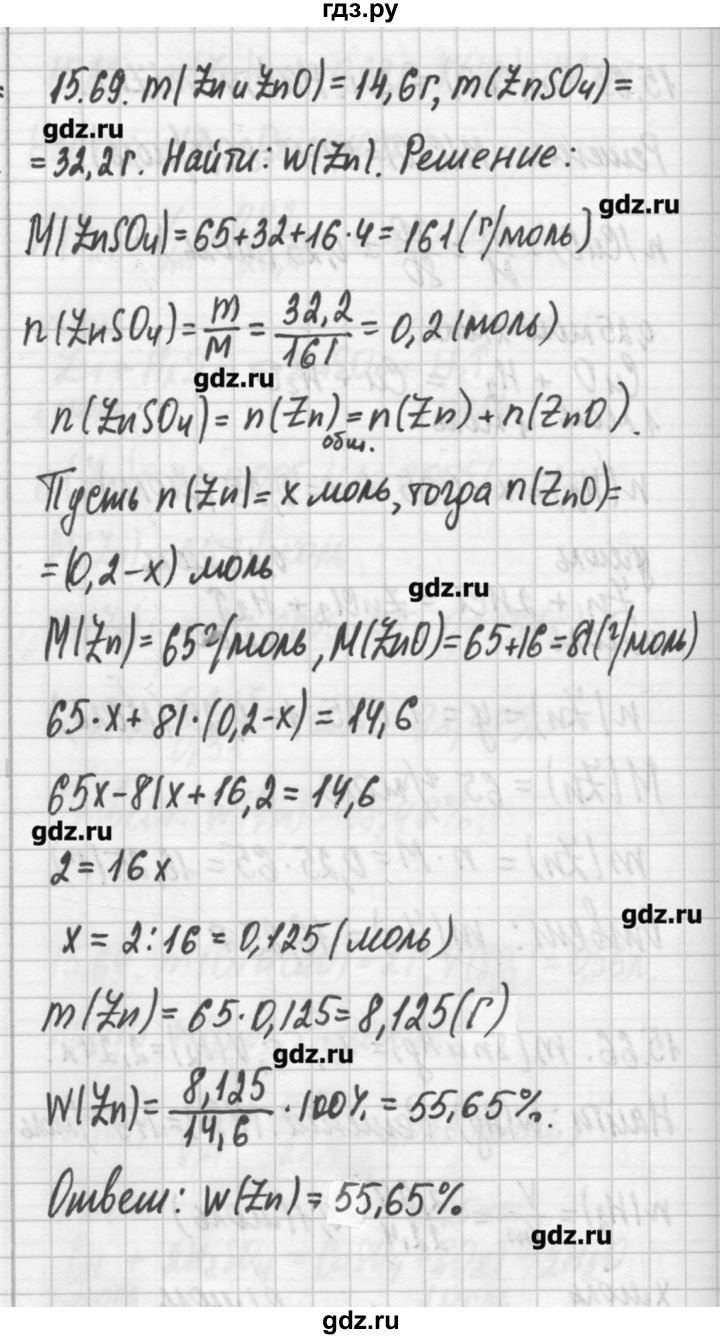 гдз.ру
15.69. m(Zn и ZnO) = 14,6 г, m(ZnSO₄) =
gdz.ru
= 32,2 г. Найти: w(Zn). Решение:
gdz.ru
M(ZnSO₄) = 65+32+16·4 = 161 (г/моль)
n(ZnSO₄) = m/M = 32,2/161 = 0,2 (моль)
gdz.ru
n(ZnSO₄) = n(Zn)общ. = n(Zn) + n(ZnO).
Пусть n(Zn) = x моль, тогда n(ZnO) =
= (0,2-x) моль
gdz.ru
M(Zn) = 65 г/моль, M(ZnO) = 65+16 = 81 (г/моль)
65·x + 81·(0,2-x) = 14,6
65x - 81x + 16,2 = 14,6
gdz.ru
2 = 16x
gdz.ru
x = 2:16 = 0,125 (моль)
m(Zn) = 65·0,125 = 8,125 (г)
gdz.ru
w(Zn) = 8,125/14,6 · 100% = 55,65%.
Ответ: w(Zn) = 55,65%
gdz.ru
gdz.ru